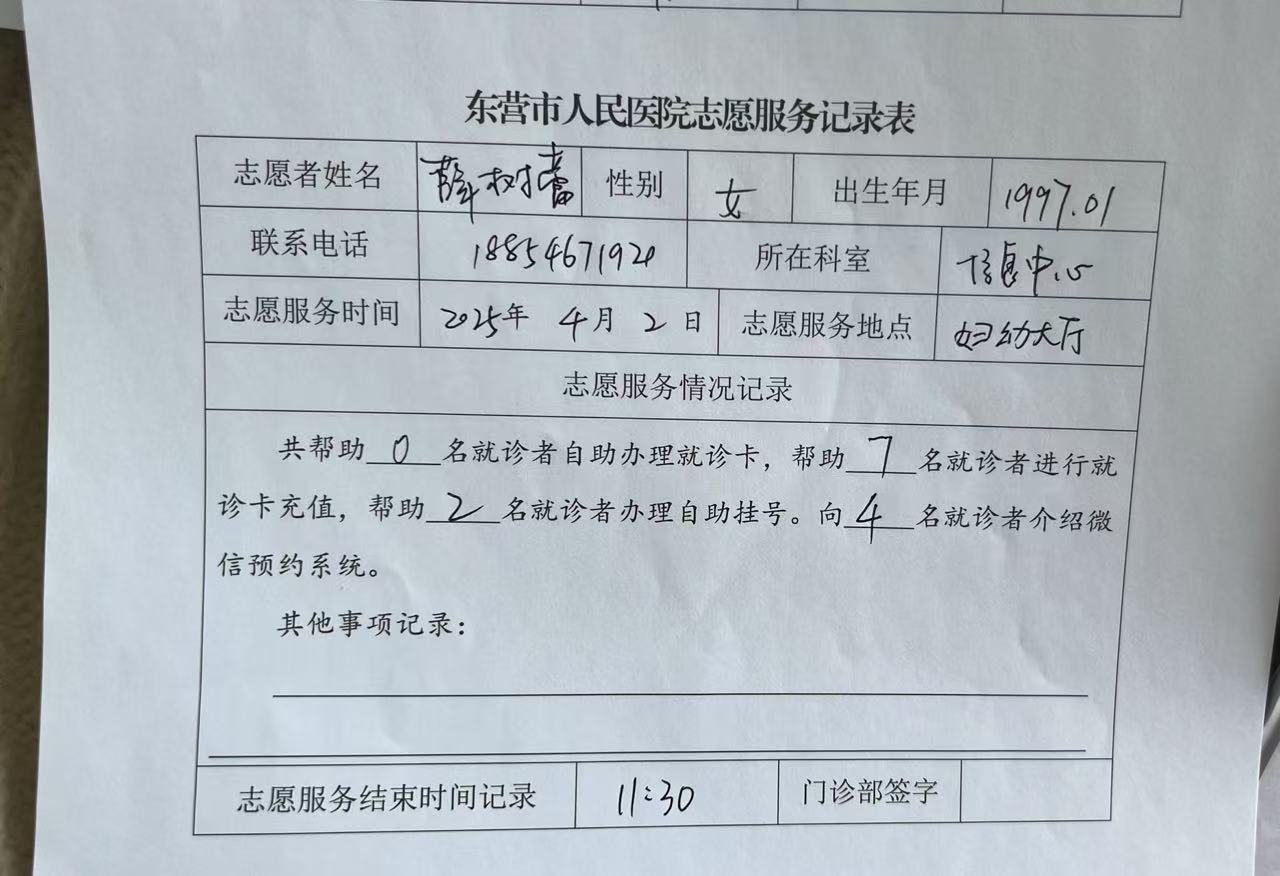 东营市人民医院志愿服务记录表
志愿者姓名 薛树蕾 性别 女 出生年月 1997.01
联系电话 18854671920 所在科室 信息中心
志愿服务时间 2025年 4月 2日 志愿服务地点 妇幼大厅
志愿服务情况记录
共帮助 0 名就诊者自助办理就诊卡，帮助 7 名就诊者进行就
诊卡充值，帮助 2 名就诊者办理自助挂号。向 4 名就诊者介绍微
信预约系统。
其他事项记录：
志愿服务结束时间记录 11:30 门诊部签字